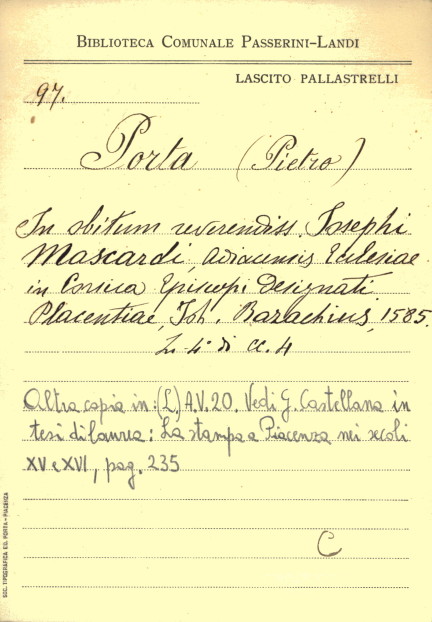 BIBLIOTECA COMUNALE PASSERINI-LANDI
LASCITO PALLASTRELLI
97.
Porta (Pietro)
In obitum reverendiss. Josephi
Mascardi, Adiacensis Ecclesiae
in Corsica Episcopi Designati.
Placentiae, Joh. Bazachius, 1585.
In 4° di cc. 4
Altra copia in: (L) A.V.20. Vedi G. Castellana in
tesi di laurea: La stampa a Piacenza nei secoli
XV e XVI, pag. 235
C
SOC. TIPOGRAFICA ED. PORTA - PIACENZA